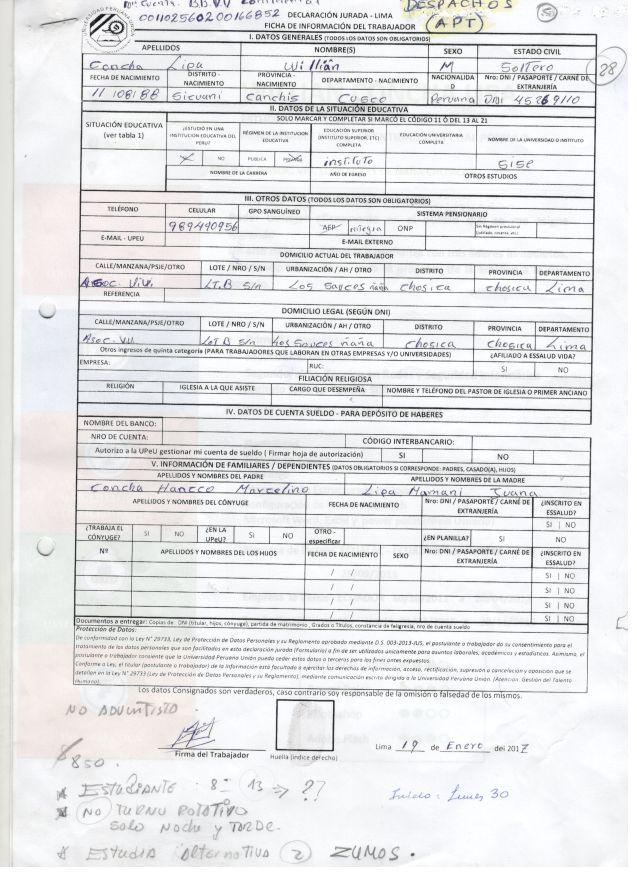 Nº cuenta. B.B.V.V Continental
0011025602 00166852 DECLARACIÓN JURADA - LIMA
DESPACHOS
(APT)
FICHA DE INFORMACIÓN DEL TRABAJADOR
88
I. DATOS GENERALES (TODOS LOS DATOS SON OBLIGATORIOS)
APELLIDOS NOMBRE(S) SEXO ESTADO CIVIL
Concha Lipa Willián M Soltero
FECHA DE NACIMIENTO DISTRITO - NACIMIENTO PROVINCIA - NACIMIENTO DEPARTAMENTO - NACIMIENTO NACIONALIDAD Nro: DNI / PASAPORTE / CARNÉ DE EXTRANJERÍA
11/08/88 Sicuani Canchis Cusco Peruana DNI 45269110
II. DATOS DE LA SITUACIÓN EDUCATIVA
SOLO MARCAR Y COMPLETAR SI MARCÓ EL CÓDIGO 11 Ó DEL 13 AL 21
SITUACIÓN EDUCATIVA (ver tabla 1) ¿ESTUDIÓ EN UNA INSTITUCIÓN EDUCATIVA DEL PERU? RÉGIMEN DE LA INSTITUCION EDUCATIVA EDUCACIÓN SUPERIOR (INSTITUTO SUPERIOR, ETC) COMPLETA EDUCACIÓN UNIVERSITARIA COMPLETA NOMBRE DE LA UNIVERSIDAD O INSTITUTO
NO PUBLICA PRIVADA instituto SISE
NOMBRE DE LA CARRERA AÑO DE EGRESO OTROS ESTUDIOS
III. OTROS DATOS (TODOS LOS DATOS SON OBLIGATORIOS)
TELÉFONO CELULAR GPO SANGUÍNEO SISTEMA PENSIONARIO
989490956 AFP integra ONP
E-MAIL - UPEU E-MAIL EXTERNO
DOMICILIO ACTUAL DEL TRABAJADOR
CALLE/MANZANA/PSJE/OTRO LOTE / NRO / S/N URBANIZACIÓN / AH / OTRO DISTRITO PROVINCIA DEPARTAMENTO
Asoc. Viv. LT.B S/n Los Sauces ñaña Chosica Chosica Lima
REFERENCIA
DOMICILIO LEGAL (SEGÚN DNI)
CALLE/MANZANA/PSJE/OTRO LOTE / NRO / S/N URBANIZACIÓN / AH / OTRO DISTRITO PROVINCIA DEPARTAMENTO
Asoc. VV. LOT B S/n Los Sauces ñaña Chosica Chosica Lima
Otros ingresos de quinta categoría (PARA TRABAJADORES QUE LABORAN EN OTRAS EMPRESAS Y/O UNIVERSIDADES) ¿AFILIADO A ESSALUD VIDA?
EMPRESA: RUC: SI NO
FILIACIÓN RELIGIOSA
RELIGIÓN IGLESIA A LA QUE ASISTE CARGO QUE DESEMPEÑA NOMBRE Y TELÉFONO DEL PASTOR DE IGLESIA O PRIMER ANCIANO
IV. DATOS DE CUENTA SUELDO - PARA DEPÓSITO DE HABERES
NOMBRE DEL BANCO:
NRO DE CUENTA: CÓDIGO INTERBANCARIO:
Autorizo a la UPeU gestionar mi cuenta de sueldo ( Firmar hoja de autorización) SI NO
V. INFORMACIÓN DE FAMILIARES / DEPENDIENTES (DATOS OBLIGATORIOS SI CORRESPONDE: PADRES, CASADO(A), HIJOS)
APELLIDOS Y NOMBRES DEL PADRE APELLIDOS Y NOMBRES DE LA MADRE
Concha Hancco Marcelino Lipa Mamani Juana
APELLIDOS Y NOMBRES DEL CÓNYUGE FECHA DE NACIMIENTO Nro: DNI / PASAPORTE / CARNÉ DE EXTRANJERÍA ¿INSCRITO EN ESSALUD?
SI NO
¿TRABAJA EL CÓNYUGE? SI NO ¿EN LA UPeU? SI NO OTRO - especificar ¿EN PLANILLA? SI NO
Nº APELLIDOS Y NOMBRES DE LOS HIJOS FECHA DE NACIMIENTO SEXO Nro: DNI / PASAPORTE / CARNÉ DE EXTRANJERÍA ¿INSCRITO EN ESSALUD?
/ / SI NO
/ / SI NO
/ / SI NO
/ / SI NO
Documentos a entregar: Copias de: DNI (titular, hijos, cónyuge), partida de matrimonio , Grados o Títulos, constancia de feligresía, nro de cuenta sueldo
Protección de Datos:
De conformidad con la Ley N° 29733, Ley de Protección de Datos Personales y su Reglamento aprobado mediante D.S. 003-2013-JUS, el postulante o trabajador da su consentimiento para el
tratamiento de los datos personales que son facilitados en esta declaración jurada (Formulario) a fin de ser utilizados únicamente para asuntos laborales, académicos y estadísticos. Asimismo, el
postulante o trabajador consiente que la Universidad Peruana Unión pueda ceder estos datos a terceros para los fines antes expuestos.
Conforme a Ley, el titular (postulante o trabajador) de la información está facultado a ejercitar los derechos de información, acceso, rectificación, supresión o cancelación y oposición que se
detallan en la Ley N° 29733 (Ley de Protección de Datos Personales y su Reglamento), mediante comunicación escrita dirigida a la Universidad Peruana Unión (Atención: Gestión del Talento
Humano).
Los datos Consignados son verdaderos, caso contrario soy responsable de la omisión o falsedad de los mismos.
NO ADVENTISTA.
Firma del Trabajador Huella (índice derecho) Lima 19 de Enero del 2017
850.
ESTUDIANTE : 8= 13 => ??
Inicio : Lunes 30
NO TURNO ROTATIVO
SOLO NOCHE Y TARDE.
ESTUDIA Alternativa 2 ZUMOS.